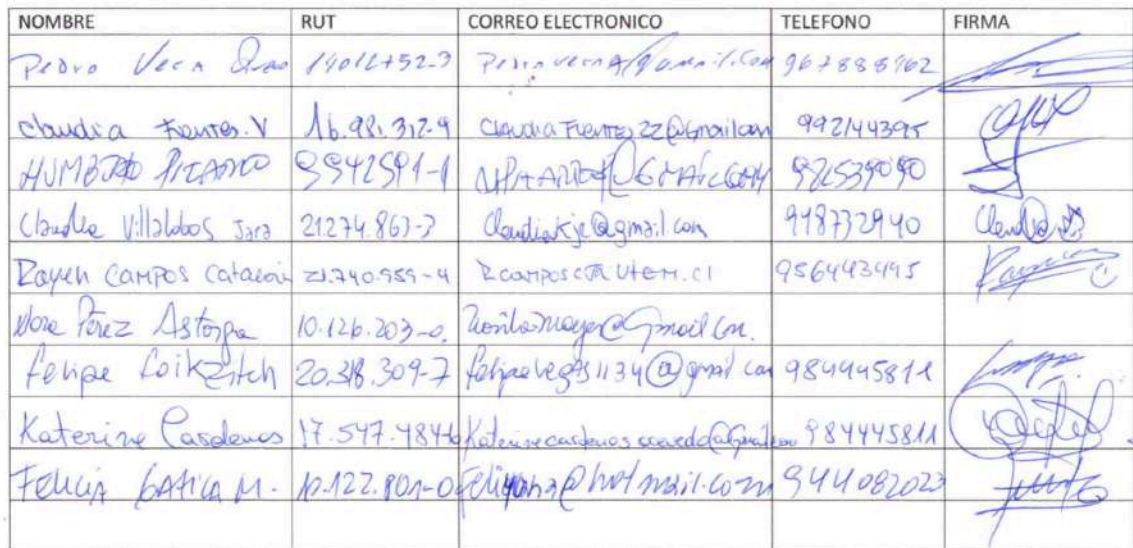 NOMBRE RUT CORREO ELECTRONICO TELEFONO FIRMA
Pedro Vera 967888962
Claudia Fuentes. V 16.981.312-9 ClaudiaFuentes22@Gmail.com 992144395
HUMBERTO PIZARRO 9942591-1 @GMAIL.COM 982539090
Claudia Villalobos Jara 21.274.863-3 Claudiakje@gmail.com 998732940 Claudia
Rayen CAMPOS Catalán 21.740.959-4 Rcamposc@utem.cl 956443495
Nora Pérez Astorga 10.126.203-0. @Gmail.Com.
Felipe 20.318.309-7 felipevegas1134@gmail.com 984445811
Katerine Cardenas 17.547.484-6 Katerinecardenasacevedo@Gmail.com 984445811
Felicia GATICA M. 10.122.801-0 @hotmail.com 944082023